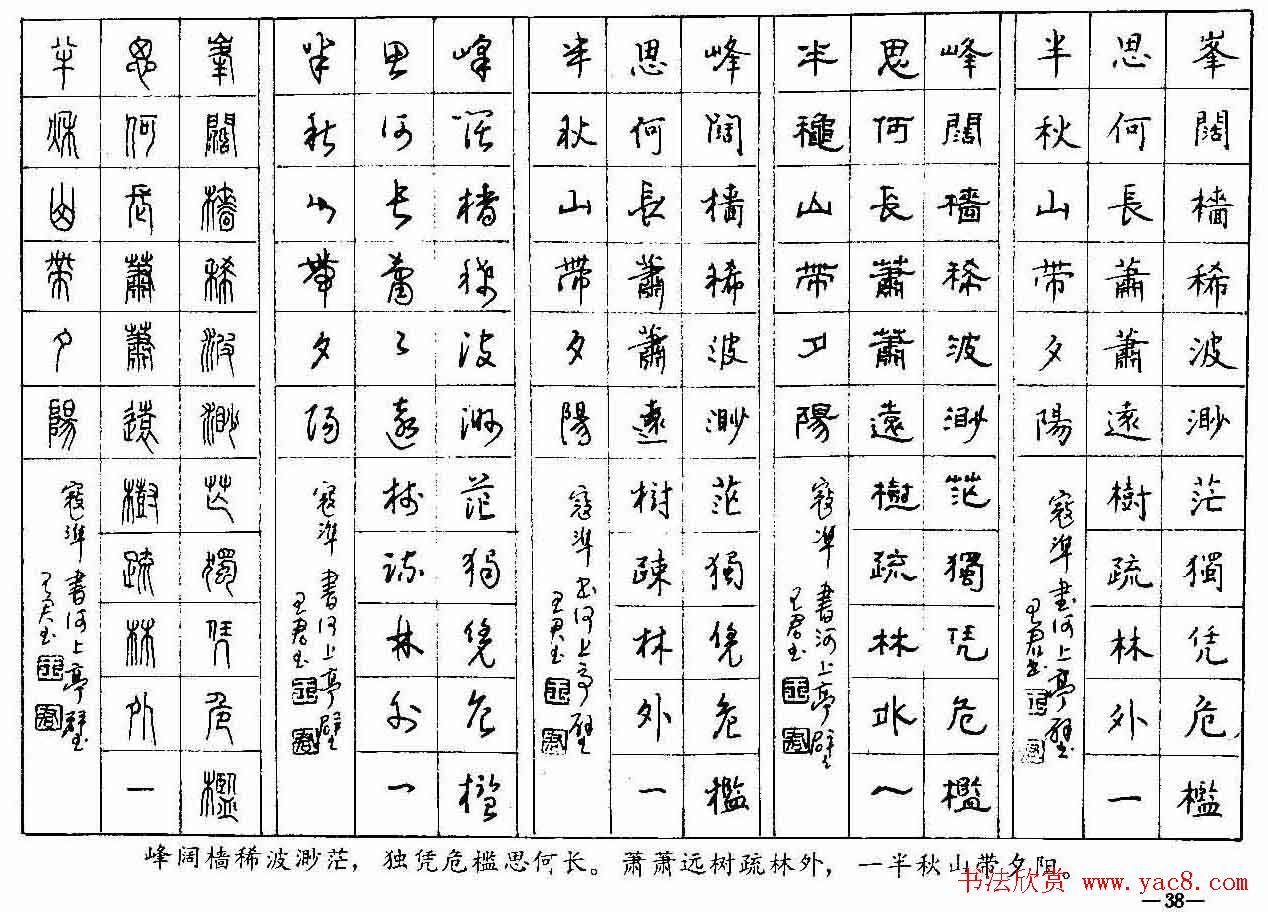 峯闊檣稀波渺茫獨凭危檻
思何長蕭蕭遠樹疏林外一
半秋山带夕陽
寇準書河上亭壁
王君书
峰闊檣稀波渺茫獨凭危檻
思何長蕭蕭遠樹疏林外一
半穐山带夕陽
寇準書河上亭壁
王君书
峰闊檣稀波渺茫獨凭危檻
思何長蕭蕭遠樹疎林外一
半秋山带夕陽
寇準书河上亭壁
王君书
峰闊檣稀波渺茫獨凭危檻
思何長蕭々遠樹疏林外一
半秋山帶夕陽
寇準書河上亭壁
王君书
峯闊檣稀波渺茫獨凭危檻
思何長蕭蕭遠樹疏林外一
半秋山帶夕陽
寇準書河上亭壁
王君书
峰阔樯稀波渺茫，独凭危槛思何长。萧萧远树疏林外，一半秋山带夕阳。
书法欣赏 www.yac8.com
—38—